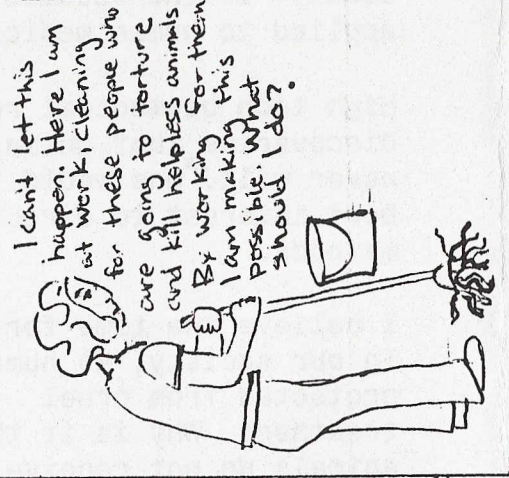 I can't let this
happen. Here I am
at work, cleaning
for these people who
are going to torture
and kill helpless animals
By working for them
I am making this
possible. What
should I do?